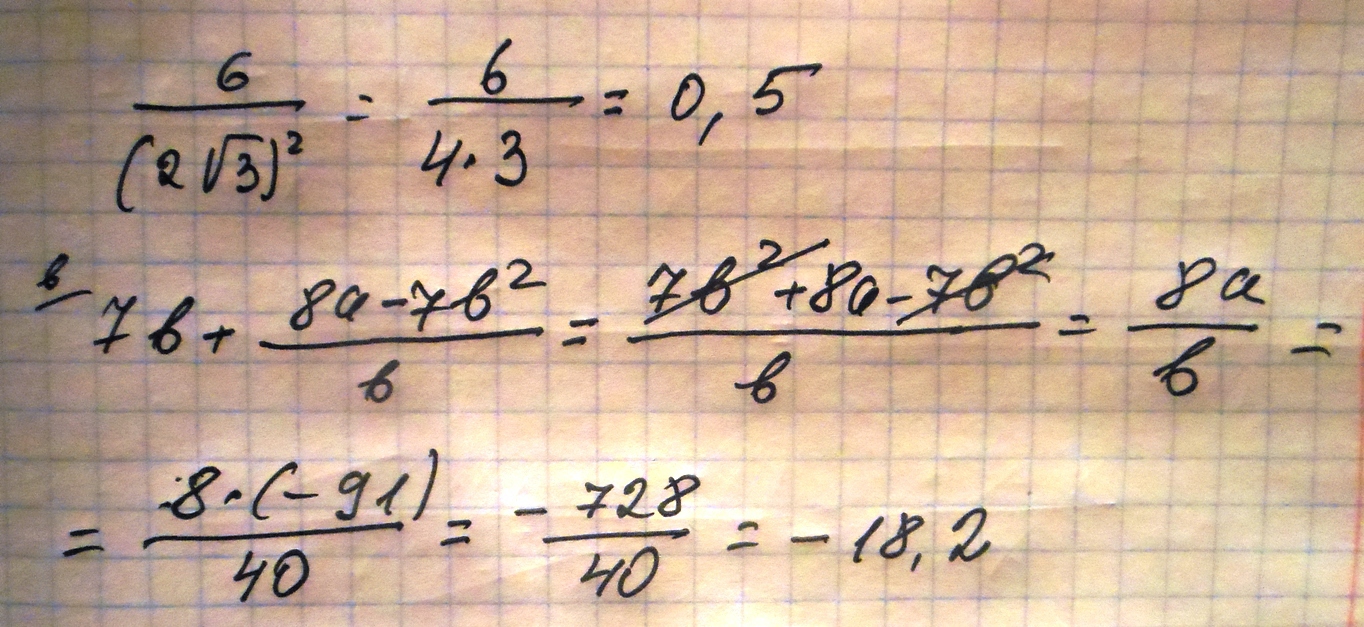 6/(2√3)² = 6/(4·3) = 0,5
b/ 7b + (8a-7b²)/b = (7b²+8a-7b²)/b = 8a/b =
= 8·(-91)/40 = -728/40 = -18,2